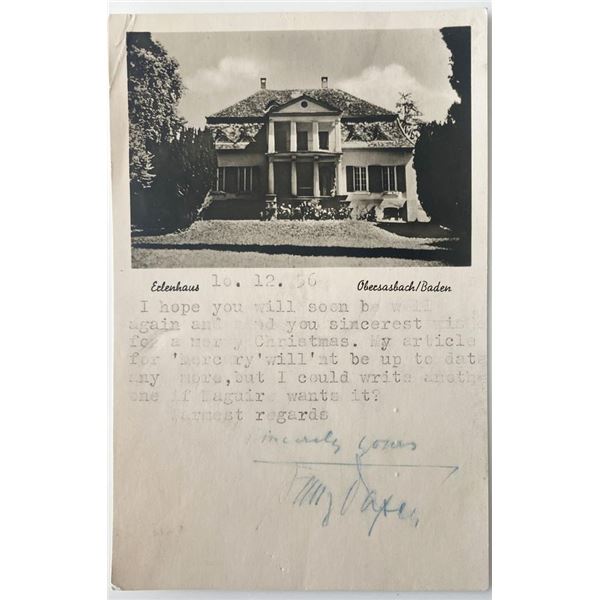 Erlenhaus
Obersasbach/Baden
10. 12. 56
I hope you will soon be well
again and send you sincerest wishe
for a merry Christmas. My article
for 'mercury'will'nt be up to date
any more,but I could write anothe
one if Maguire wants it?
Warmest regards
sincerely yours